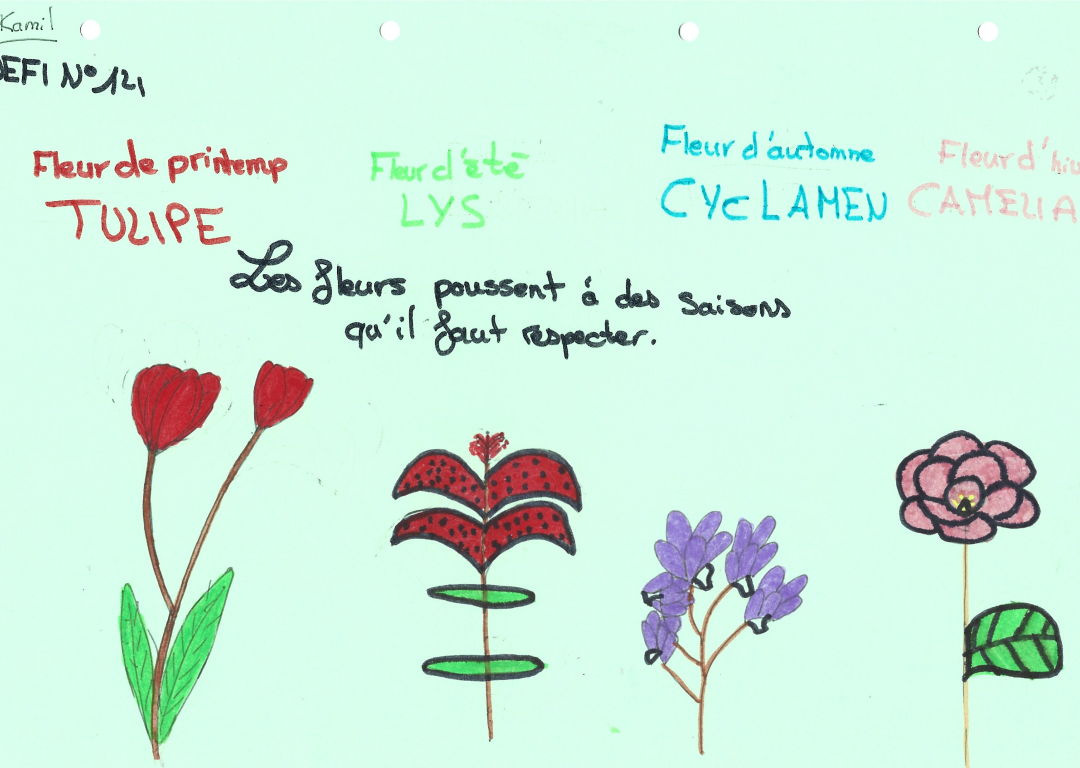 Kamil
DEFI N° 121
Fleur de printemp
TULIPE
Fleur d'été
LYS
Fleur d'automne
CYCLAMEN
Fleur d'hiv
CAMELIA
Les fleurs poussent à des saisons
qu'il faut respecter.